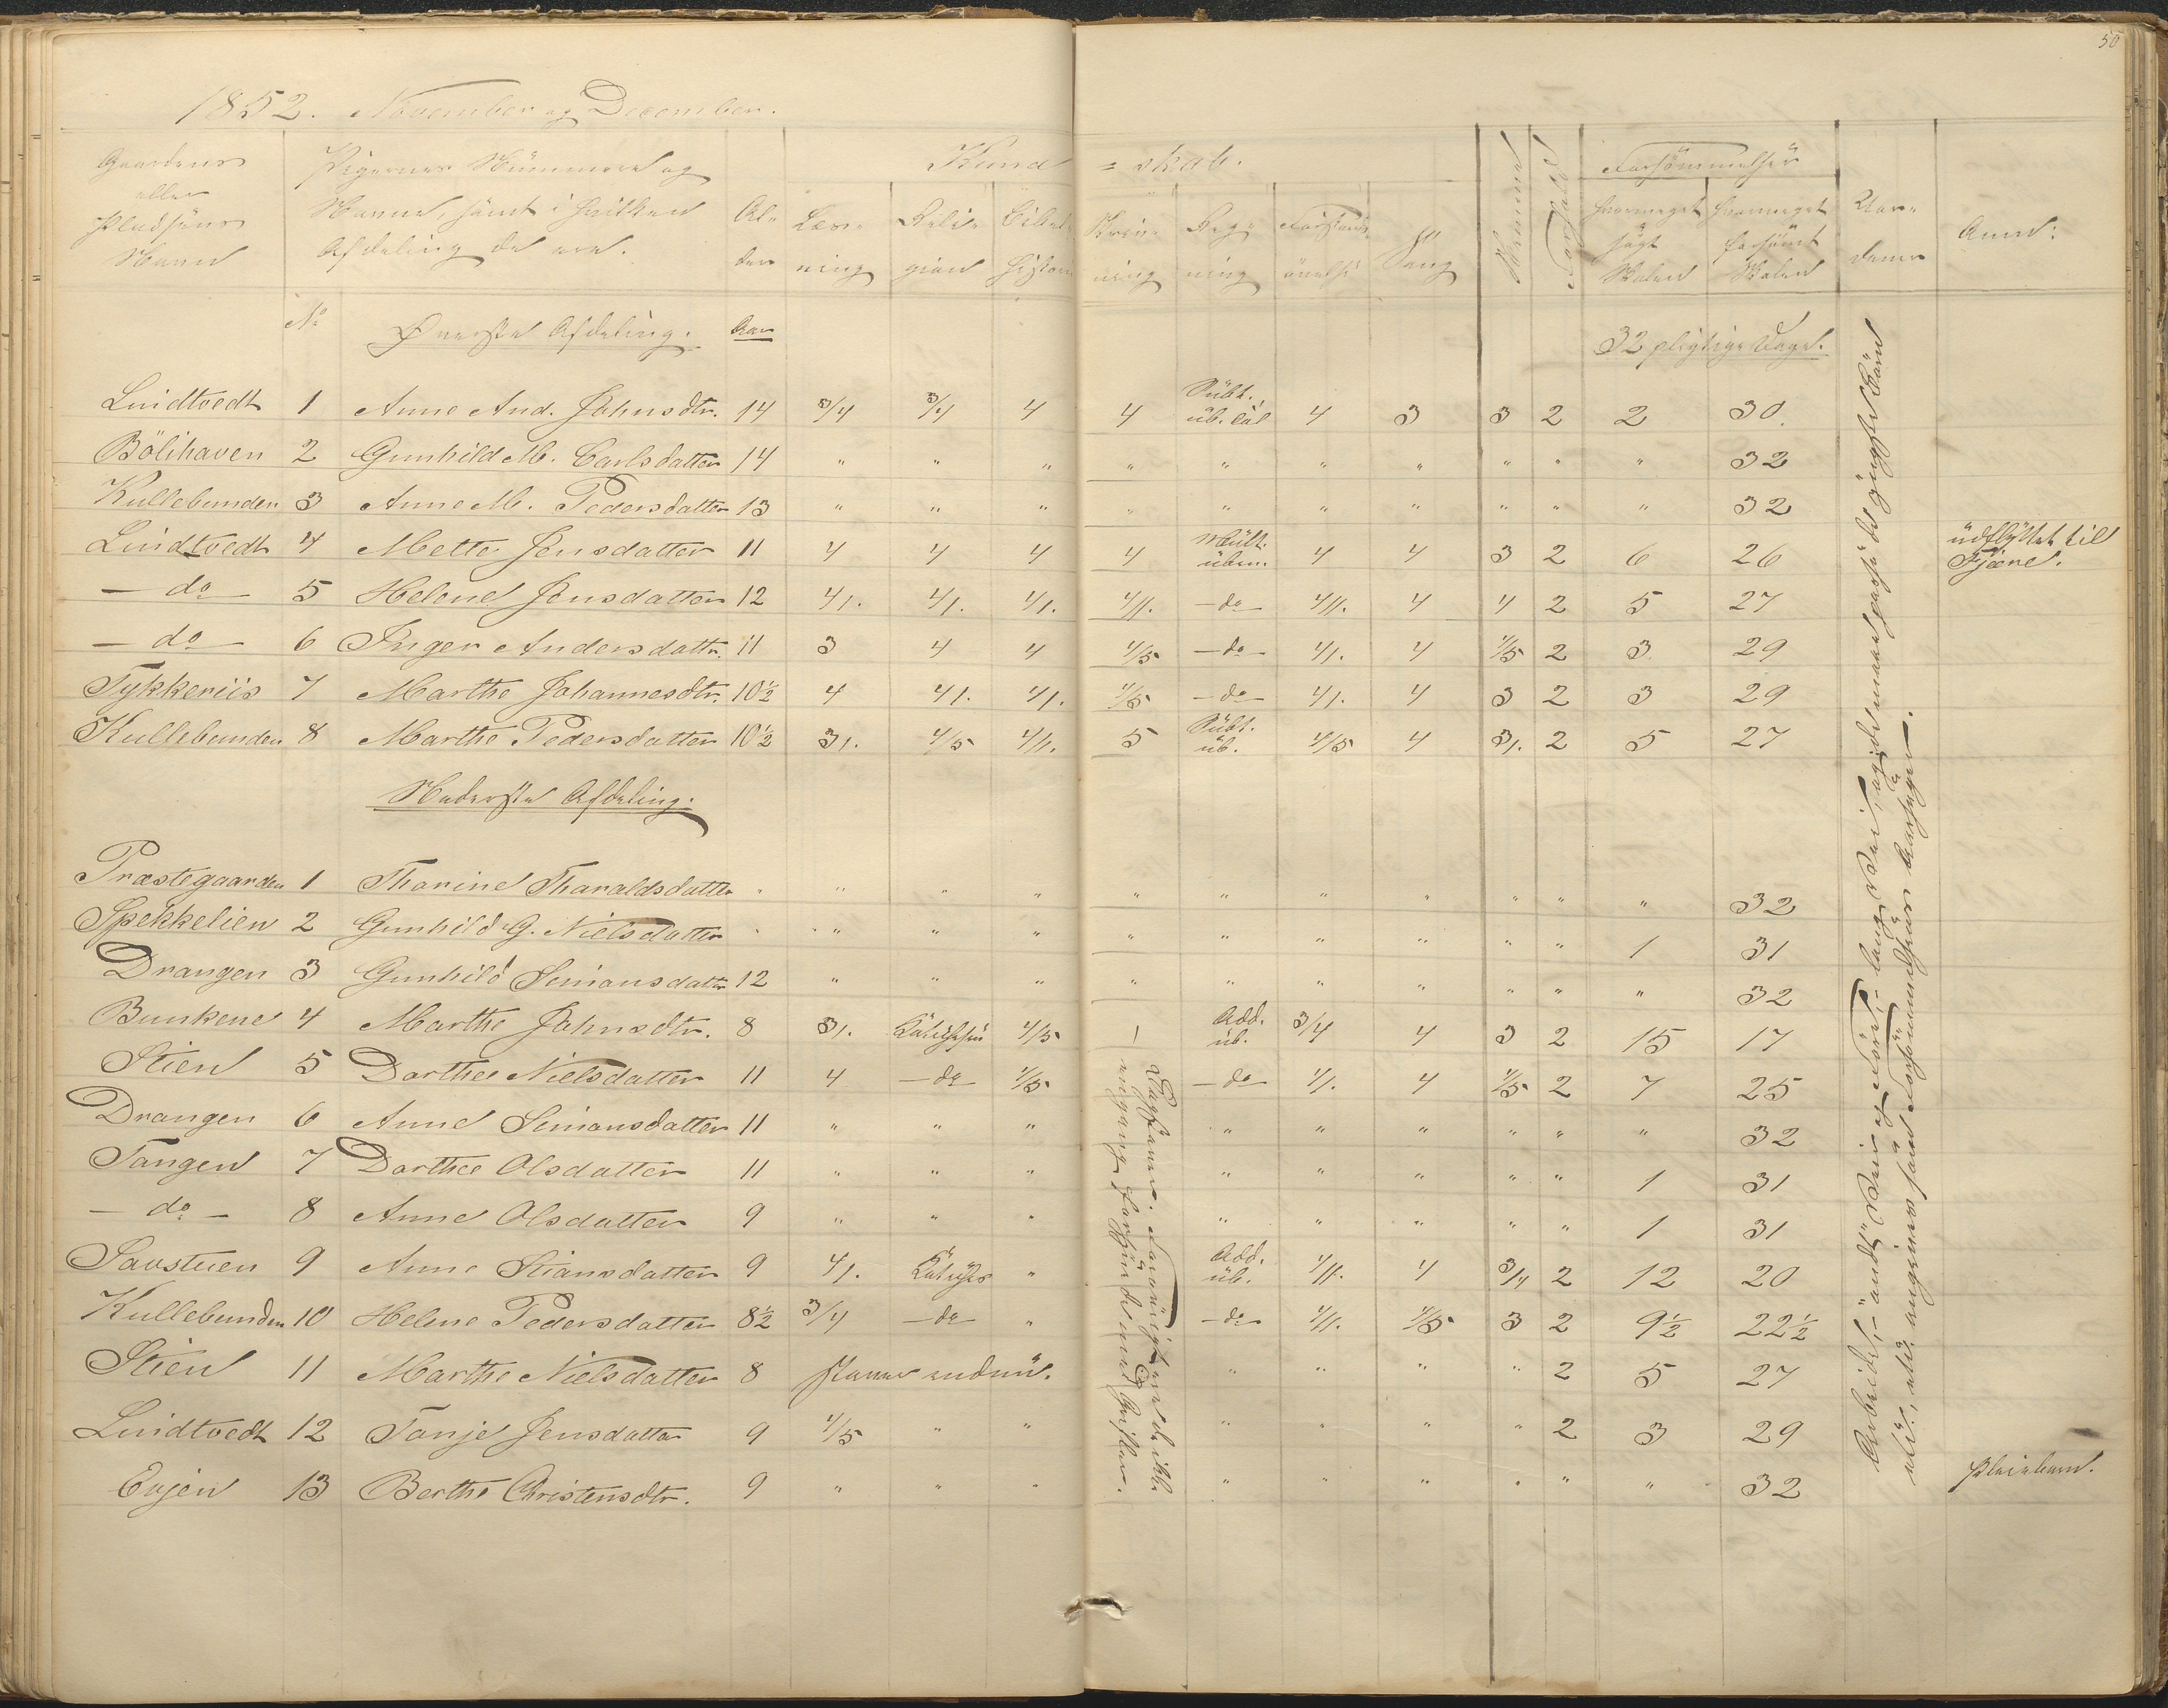 50
1852. November og December.
Gaardens eller Pladsens Navn | Pigernes Nummere og Navne, samt i hvilken Afdeling de ere. | Alder | Kundskab. | Forsømmelser
Læsning | Religion | Bibelhistorie | Skrivning | Regning | Forstandsøvelse | Sang | Nemme | Forhold | hvormeget søgt Skolen | hvormeget forsømt Skolen | Aarsagerne | Anm:
No Øverste Afdeling. Aar 32 pligtige Dage.
Lindtvedt 1 Anne And. Johnsdtr. 14 3/4 3/4 4 4 Subt. üb. 4 3 3 2 2 30.
Bölihaven 2 Gunhild M. Carlsdatter 14 " " " " " " " " " " 32
Kullebunden 3 Anne M. Pedersdatter 13 " " " " " " " " " " 32
Lindtvedt 4 Mette Jensdatter 11 4 4 4 4 Mult. üben. 4 4 3 2 6 26 udflyttet til Fjære.
— do — 5 Helene Jensdatter 12 4/. 4/. 4/. 4//. — do — 4//. 4 4 2 5 27
— do — 6 Inger Andersdattr. 11 3 4 4 4/5 — do — 4/. 4 4/5 2 3 29
Tykkeriis 7 Marthe Johannesdtr. 10½ 4 4/. 4/. 4/5 — do — 4/. 4 3 2 3 29
Kullebunden 8 Marthe Pedersdatter 10½ 3/. 4/5 4//. 5 Subt. üb. 4/5 4 3/. 2 5 27
Nederste Afdeling.
Præstegaarden 1 Tharine Tharaldsdatter " " " " " " " " " " " 32
Spekkelien 2 Gunhild G. Nielsdatter " " " " " " " " " " 1 31
Drangen 3 Gunhild Simonsdatter 12 " " " " " " " " " " 32
Bunkene 4 Marthe Johnsdtr. 8 3/. 4/5 Add. üb. 3/4 4 3 2 15 17
Stien 5 Darthee Nielsdatter 11 4 — do 4/5 — do — 4/. 4 4/5 2 7 25
Drangen 6 Anne Simonsdatter 11 " " " " " " " " " 32
Tangen 7 Darthee Olsdatter 11 " " " " " " " " 1 31
— do — 8 Anne Olsdatter 9 " " " " " " " " 1 31
Savstuen 9 Anne Stiansdatter 9 4/. " Add. üb. 4//. 4 3/4 2 12 20
Kullebunden 10 Helene Pedersdatter 8½ 3/4 — do " — do — 4//. 4/5 3 2 9½ 22½
Stien 11 Marthe Nielsdatter 8 staver endnu. " " " " 2 5 27
Lindtvedt 12 Tonje Jensdatter 9 4/5 " " " " " " 2 3 29
Evjen 13 Berthe Christensdtr. 9 " " " " " " " " " 32 Pleiebarn.